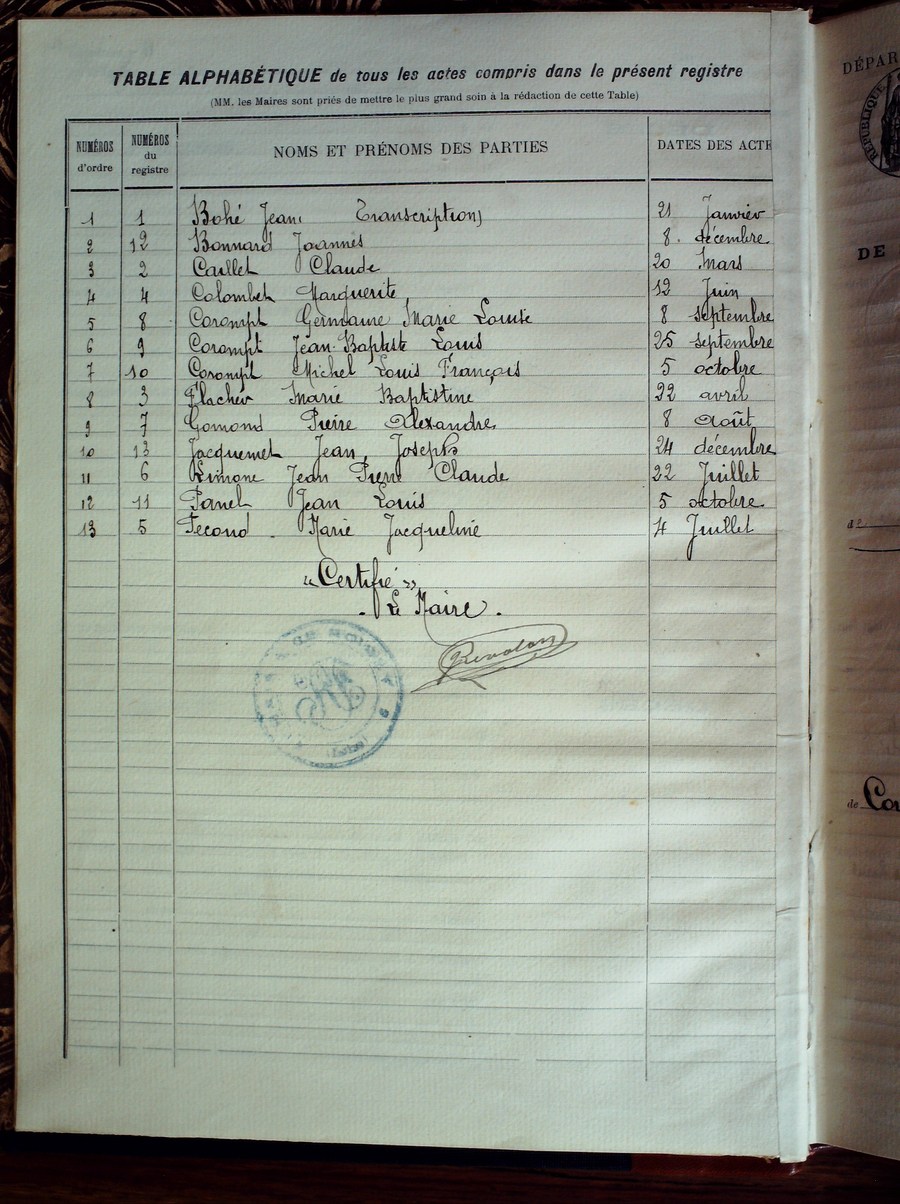 TABLE ALPHABÉTIQUE de tous les actes compris dans le présent registre
(MM. les Maires sont priés de mettre le plus grand soin à la rédaction de cette Table)
NUMÉROS d'ordre NUMÉROS du registre NOMS ET PRÉNOMS DES PARTIES DATES DES ACTE
1 1 Bohé Jean (Transcription) 21 Janvier
2 12 Bonnard Joannès 8 décembre
3 2 Caillet Claude 20 Mars
4 4 Colombet Marguerite 12 Juin
5 8 Corompt Germaine Marie Louise 8 septembre
6 9 Corompt Jean-Baptiste Louis 25 septembre
7 10 Corompt Michel Louis François 5 octobre
8 3 Flacher Marie Baptistine 22 avril
9 7 Gomond Pierre Alexandre 8 Août
10 13 Jacquemet Jean Joseph 24 décembre
11 6 Limone Jean Pierre Claude 22 Juillet
12 11 Panel Jean Louis 5 octobre
13 5 Second Marie Jacqueline 4 Juillet
"Certifié"
Le Maire.
DÉPAR
RÉPUBLIQUE
DE
de Co